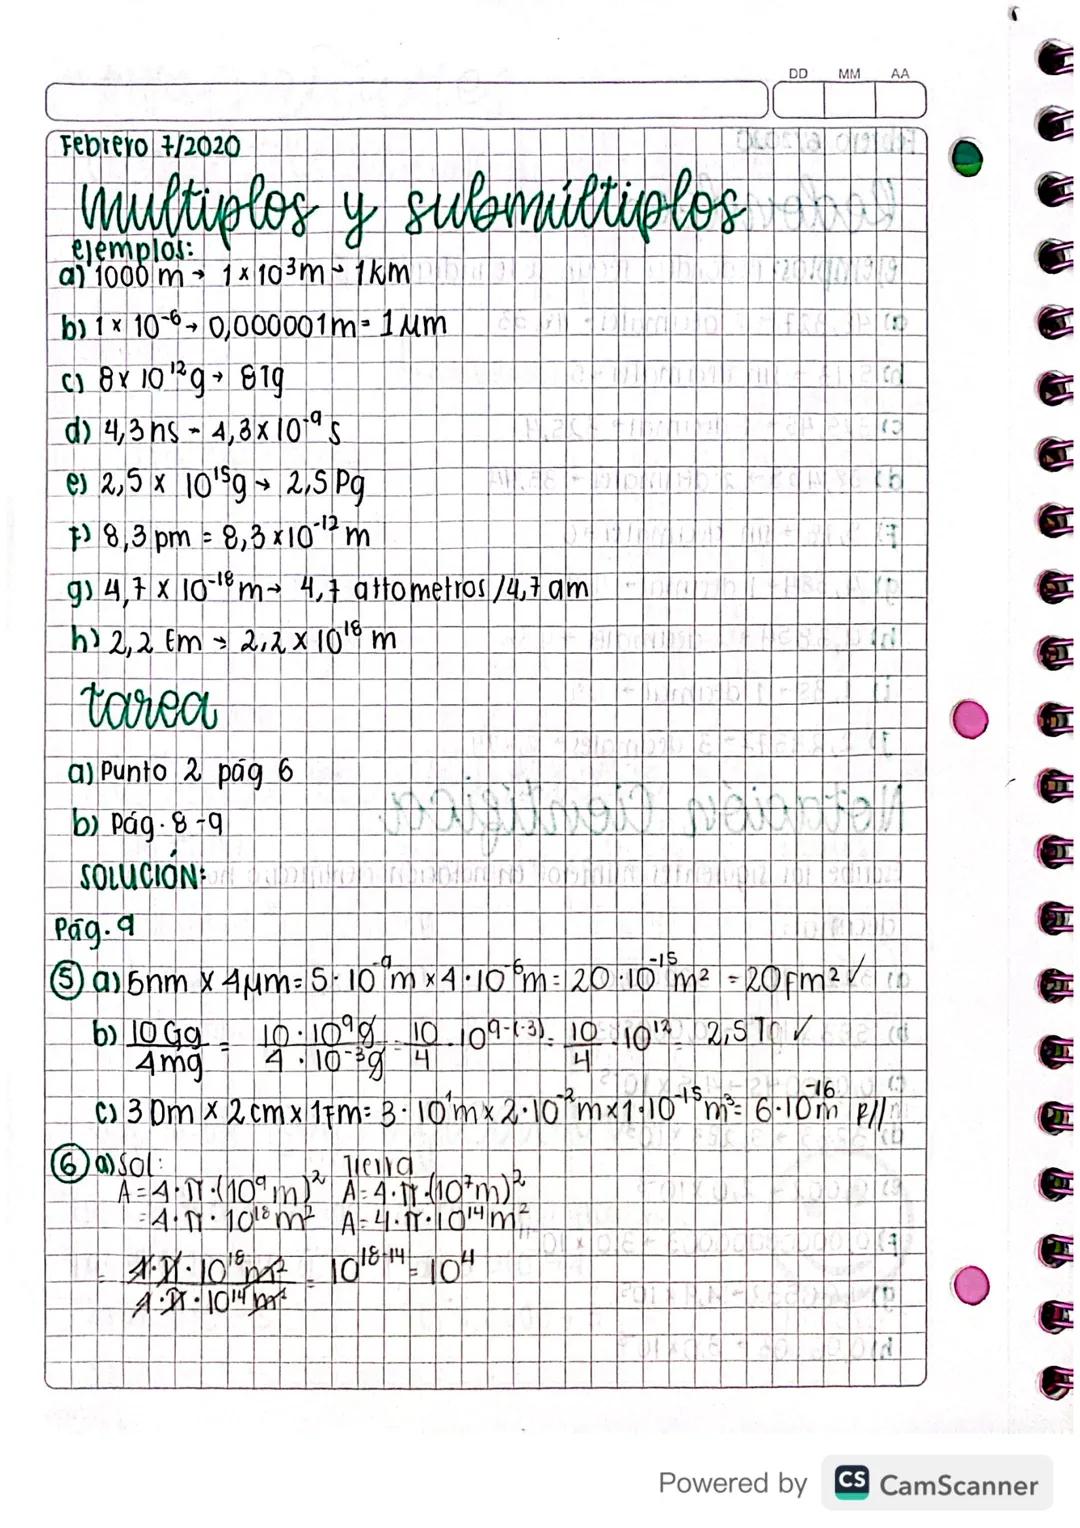 DD MM AA
Febrero 7/2020
Multiplos y submúltiplos
ejemplos:
a) 1000 m → 1 x 10³m → 1km
b) 1 x 10⁻⁶ → 0,000001m = 1 μm
c) 8x 10¹²g → 8Tg
d) 4,3ns → 4,3x10⁻⁹s
e) 2,5 x 10¹⁵g → 2,5 Pg
f) 8,3 pm = 8,3 x10⁻¹² m
g) 4,7 x 10⁻¹⁸m → 4,7 attometros /4,7am
h) 2,2 Em → 2,2 x 10¹⁸ m
tarea
a) Punto 2 pág 6
b) Pág. 8-9
SOLUCIÓN:
Pág. 9
5 a) 5nm x 4μm = 5·10⁻⁹m x 4·10⁻⁶m = 20·10⁻¹⁵m² = 20fm² ✓
b) 10 Gg/4mg = 10·10⁹g/4·10⁻³g = 10/4·10⁹⁻⁽⁻³⁾ = 10/4·10¹² = 2,5 T ✓
c) 3 Dm x 2 cm x 1fm = 3·10¹m x 2·10⁻²m x 1·10⁻¹⁵m³ = 6·10⁻¹⁶m R//
6 a) Sol: Tierra
A = 4·π·(10⁹m)² A = 4·π·(10⁷m)²
= 4·π·10¹⁸m² A = 4·π·10¹⁴m²
= 4·π·10¹⁸m²/4·π·10¹⁴m² = 10¹⁸⁻¹⁴ = 10⁴
Powered by CS CamScanner